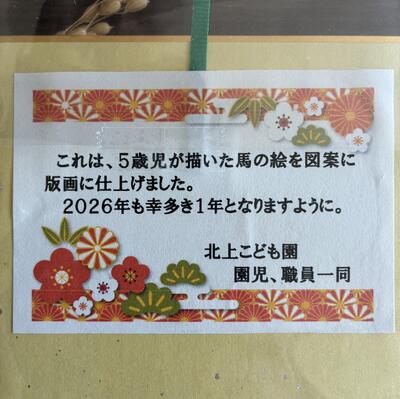 これは、5歳児が描いた馬の絵を図案に
版画に仕上げました。
2026年も幸多き1年となりますように。
北上こども園
園児、職員一同